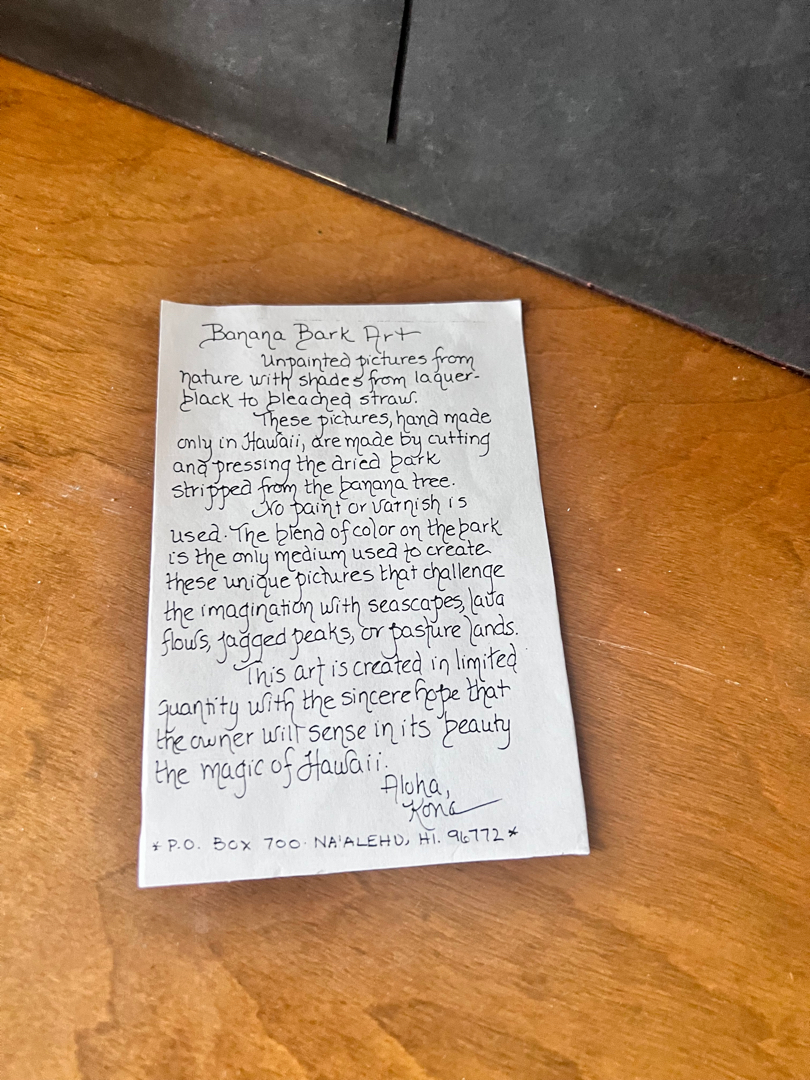 Banana Bark Art
Unpainted pictures from
nature with shades from laquer-
black to bleached straw.
These pictures, hand made
only in Hawaii, are made by cutting
and pressing the dried bark
stripped from the banana tree.
No paint or varnish is
used. The blend of color on the bark
is the only medium used to create
these unique pictures that challenge
the imagination with seascapes, lava
flows, jagged peaks, or pasture lands.
This art is created in limited
quantity with the sincere hope that
the owner will sense in its beauty
the magic of Hawaii.
Aloha,
Kona
* P.O. BOX 700· NA'ALEHU, HI. 96772 *